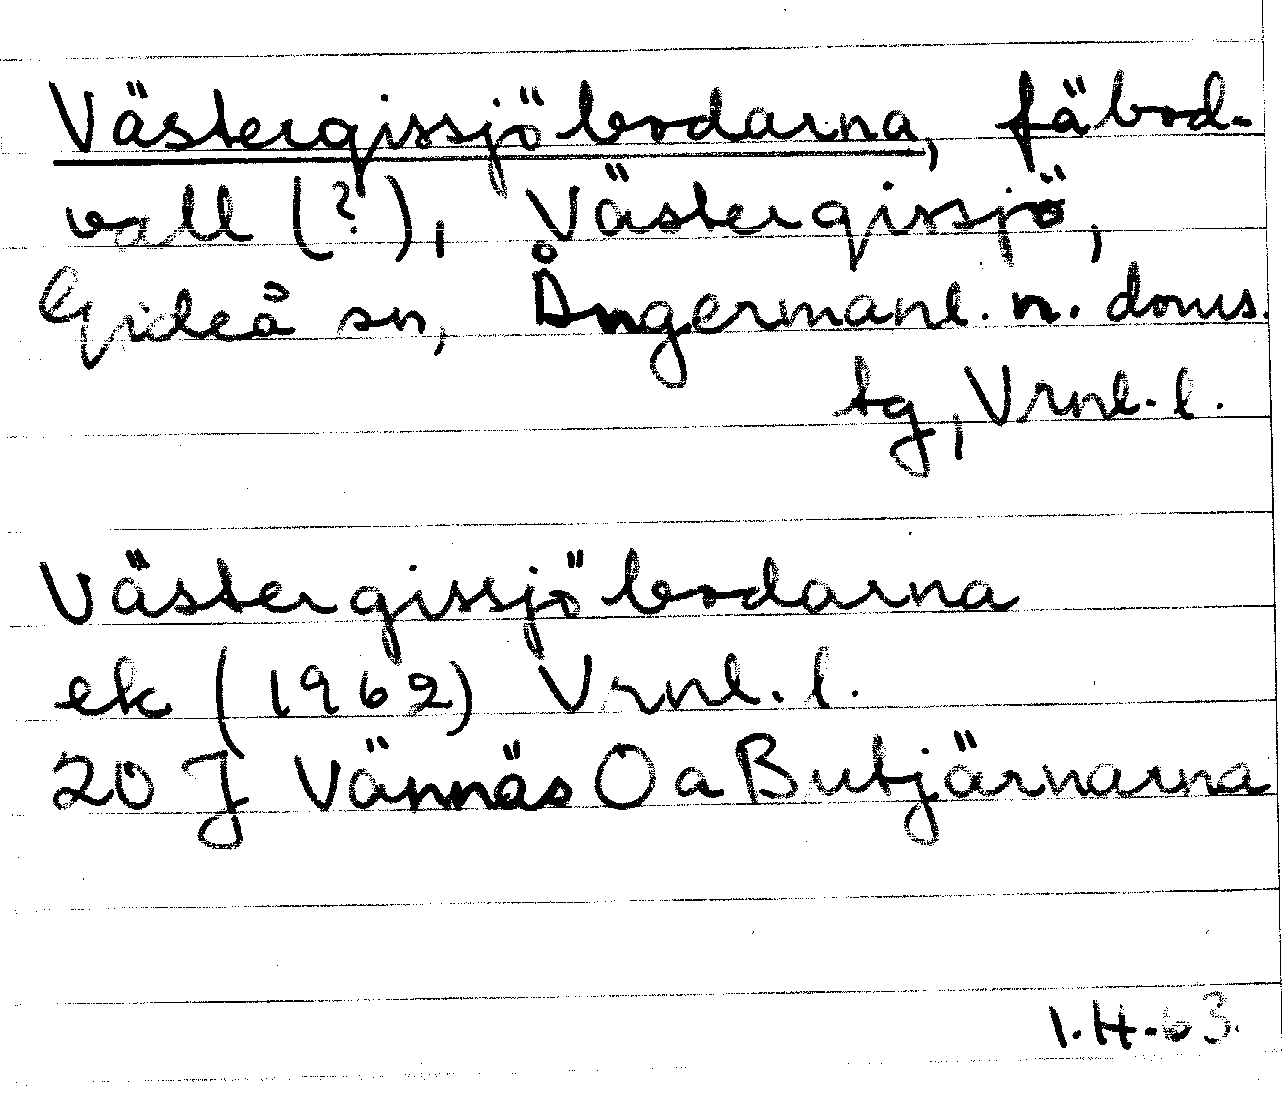 Västergissjöbodarna, fäbod-
vall (?), Västergissjö,
Gideå sn, Ångermanl. n. doms.
tg, Vrnl. l.
Västergissjöbodarna
ek (1962) Vrnl. l.
20 J Vännäs O a Butjärnarna
I.H.63.